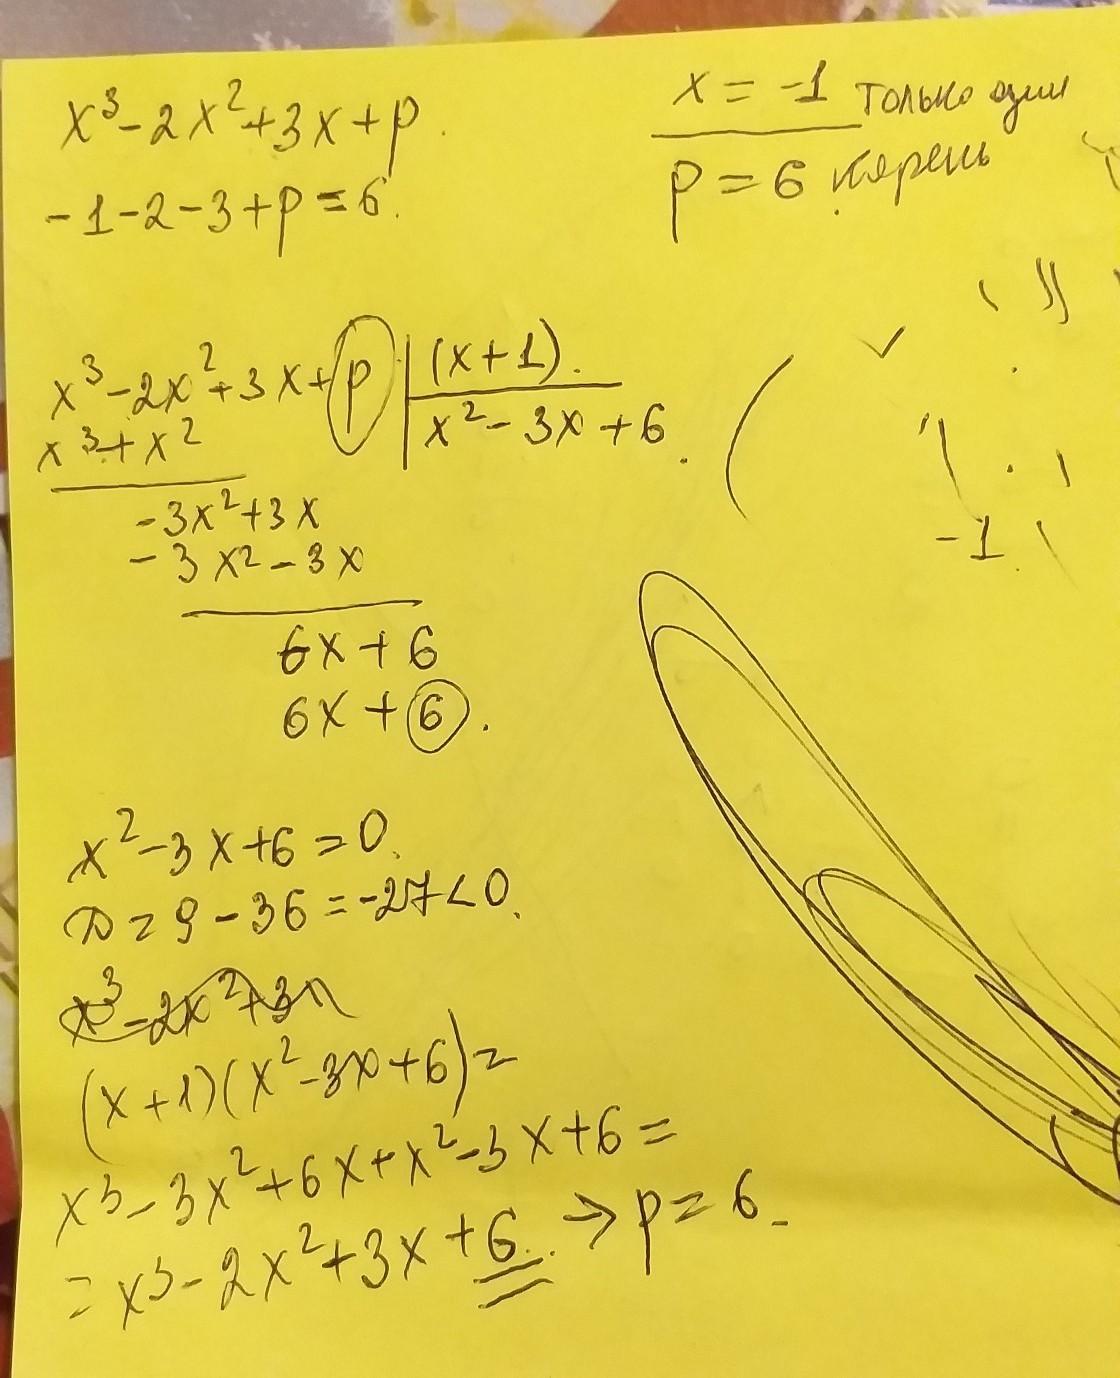 x³-2x²+3x+p.
-1-2-3+p=6.
x = -1 только один
p = 6 корень
x³-2x²+3x+p | (x+1).
x³+x² | x²-3x+6.
-3x²+3x
-3x²-3x
6x+6
6x+6.
-1
x²-3x+6=0.
D=9-36=-27<0.
x³-2x²+3
(x+1)(x²-3x+6)=
x³-3x²+6x+x²-3x+6=
=x³-2x²+3x+6. → p=6.